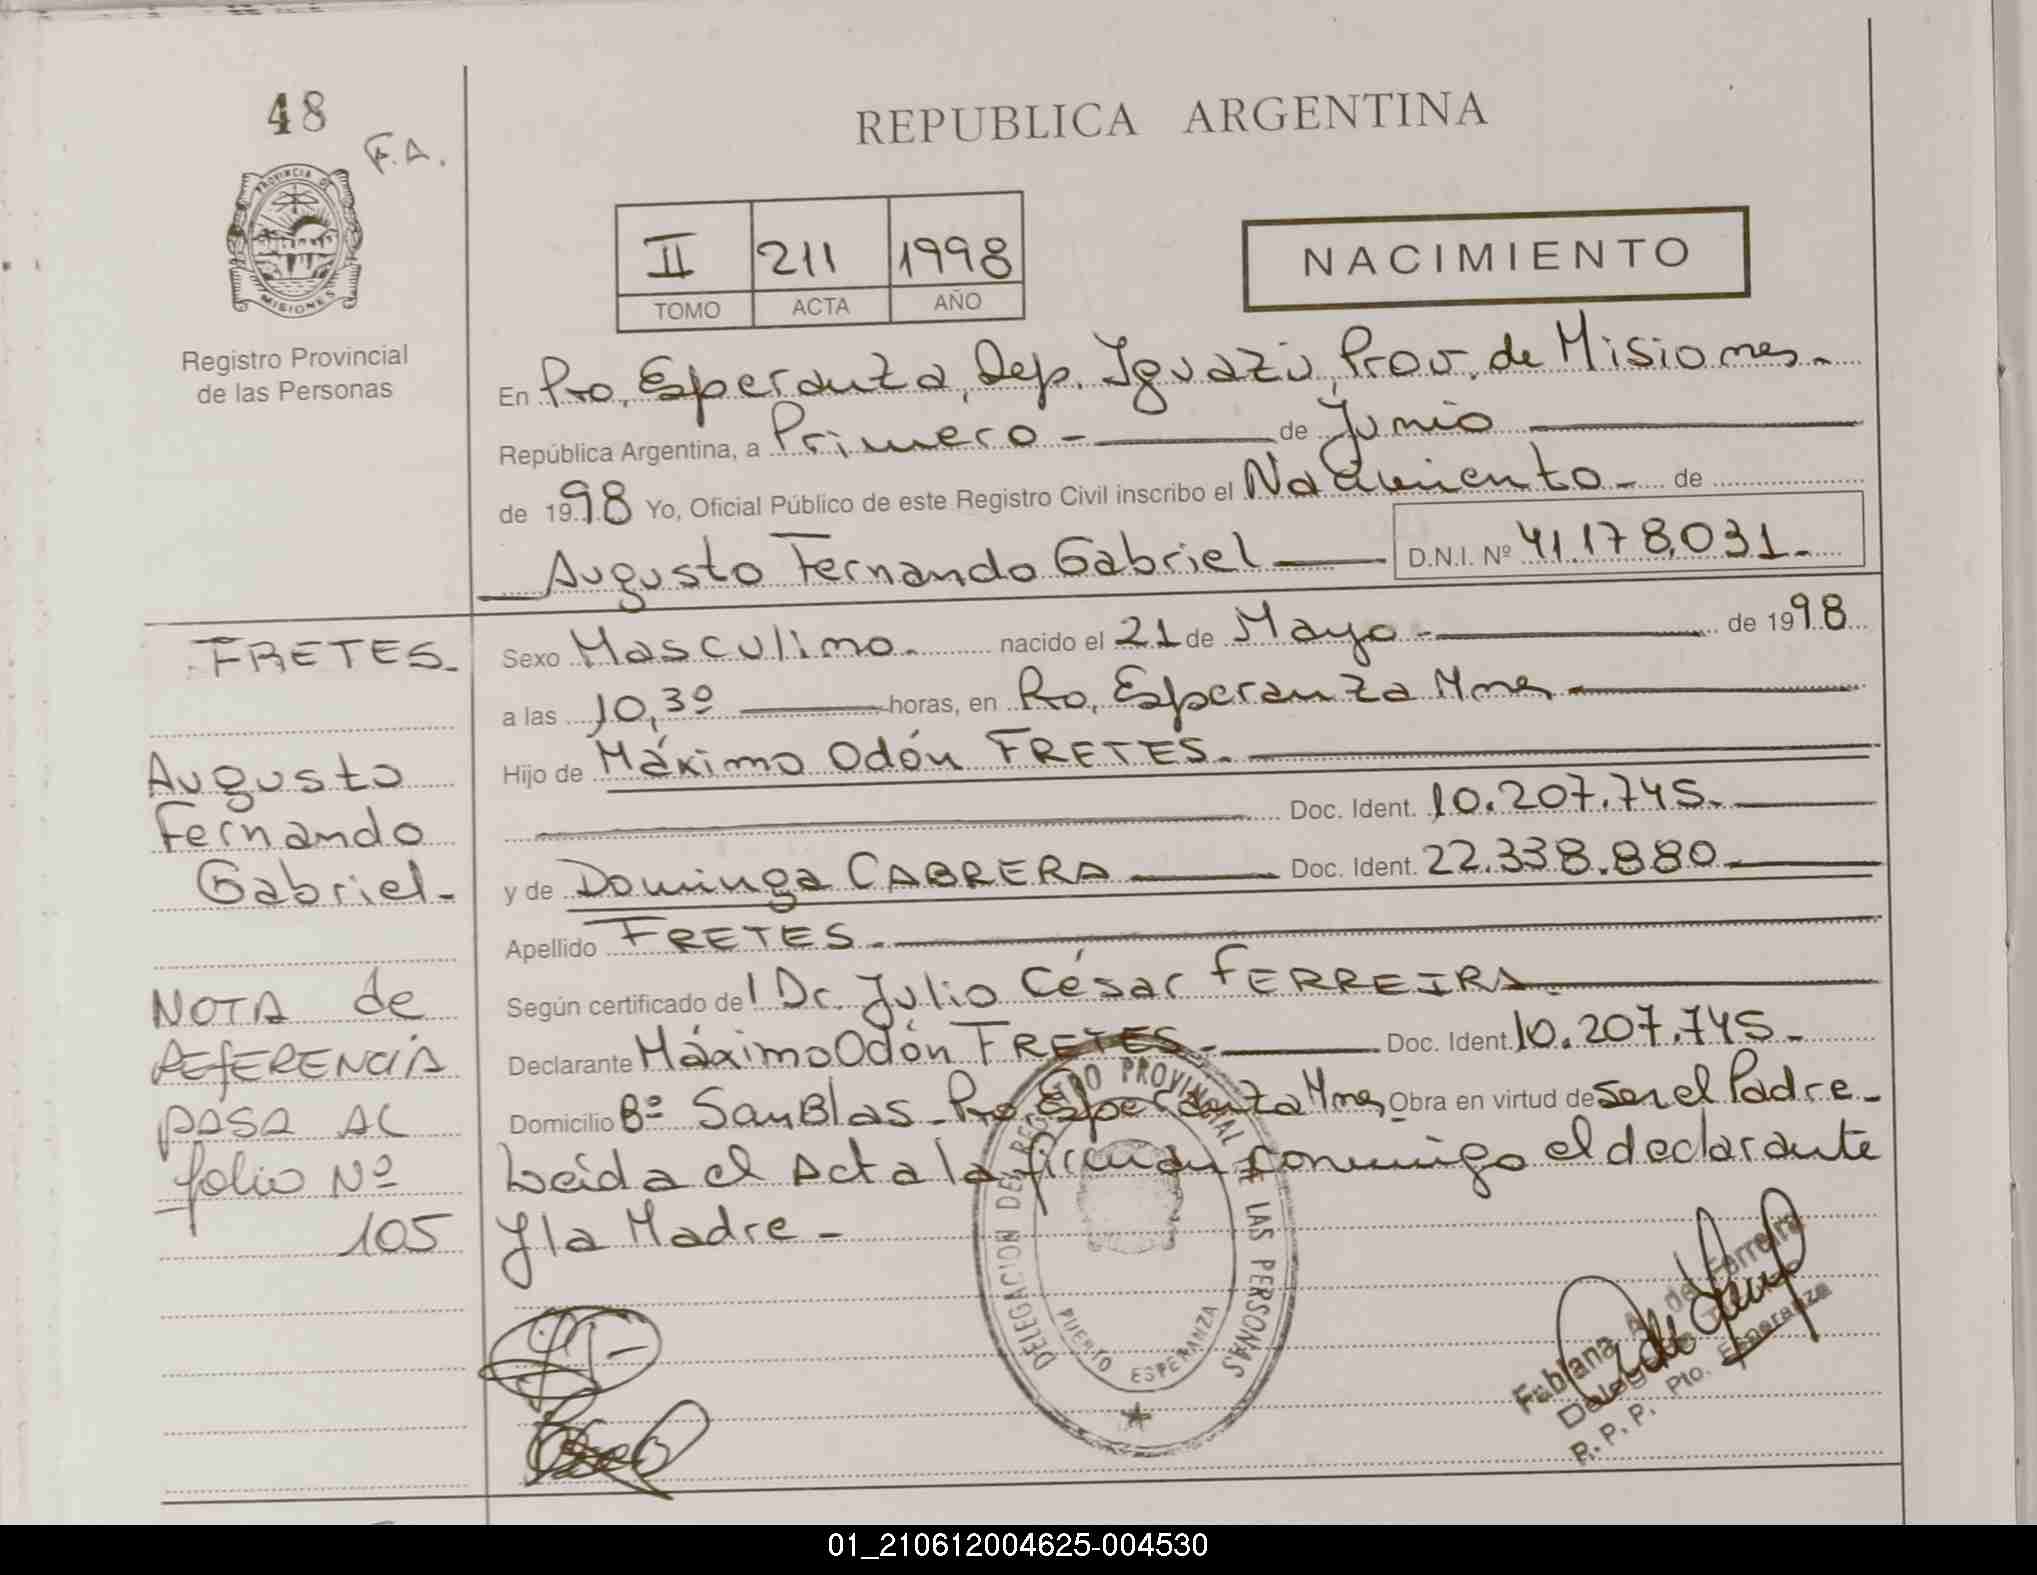 48
F.A.
PROVINCIA DE
MISIONES
Registro Provincial
de las Personas
REPUBLICA ARGENTINA
II 211 1998
TOMO ACTA AÑO
NACIMIENTO
En Pto. Esperanza, Dep. Iguazú, Prov. de Misiones.-
República Argentina, a Primero - de Junio
de 1998 Yo, Oficial Público de este Registro Civil inscribo el Nacimiento - de
Augusto Fernando Gabriel D.N.I. Nº 41.178.031.-
Sexo Masculino. nacido el 21 de Mayo - de 1998
a las 10,30 horas, en Pto. Esperanza Mnes -
Hijo de Máximo Odón FRETES.-
Doc. Ident. 10.207.745.-
y de Dominga CABRERA Doc. Ident. 22.338.880 -
Apellido FRETES.-
Según certificado del Dr. Julio César FERREIRA.
Declarante Máximo Odón FRETES.- Doc. Ident. 10.207.745.-
Domicilio Bº San Blas - Pto. Esperanza Mnes Obra en virtud de ser el Padre -
Leída el Acta la firman conmigo el declarante
y la Madre -
FRETES.
Augusto
Fernando
Gabriel -
NOTA de
REfERENCIA
PASA AL
folio Nº
105
DELEGACION DEL REGISTRO PROVINCIAL DE LAS PERSONAS
PUERTO ESPERANZA
Fabiana A. del Ferreira
R.P.P. Pto. Esperanza
01_210612004625-004530